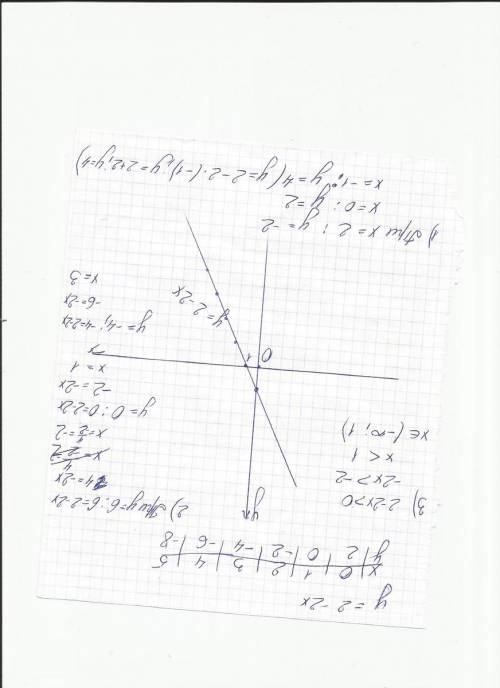 y = 2 - 2x
x | 0 | 1 | 2 | 3 | 4 | 5
y | 2 | 0 | -2 | -4 | -6 | -8
y
0
1
x
y = 2-2x
3) 2-2x>0
-2x>-2
x < 1
x∈(-∞; 1)
2) При y=6: 6=2-2x
4=-2x
x = 4/-2 = -2
y=0; 0=2-2x
-2 = -2x
x = 1
y = -4; -4=2-2x
-6=-2x
x=3
1) При x = 2; y = -2
x=0; y=2
x=-1; y=4 (y=2-2·(-1); y=2+2; y=4)